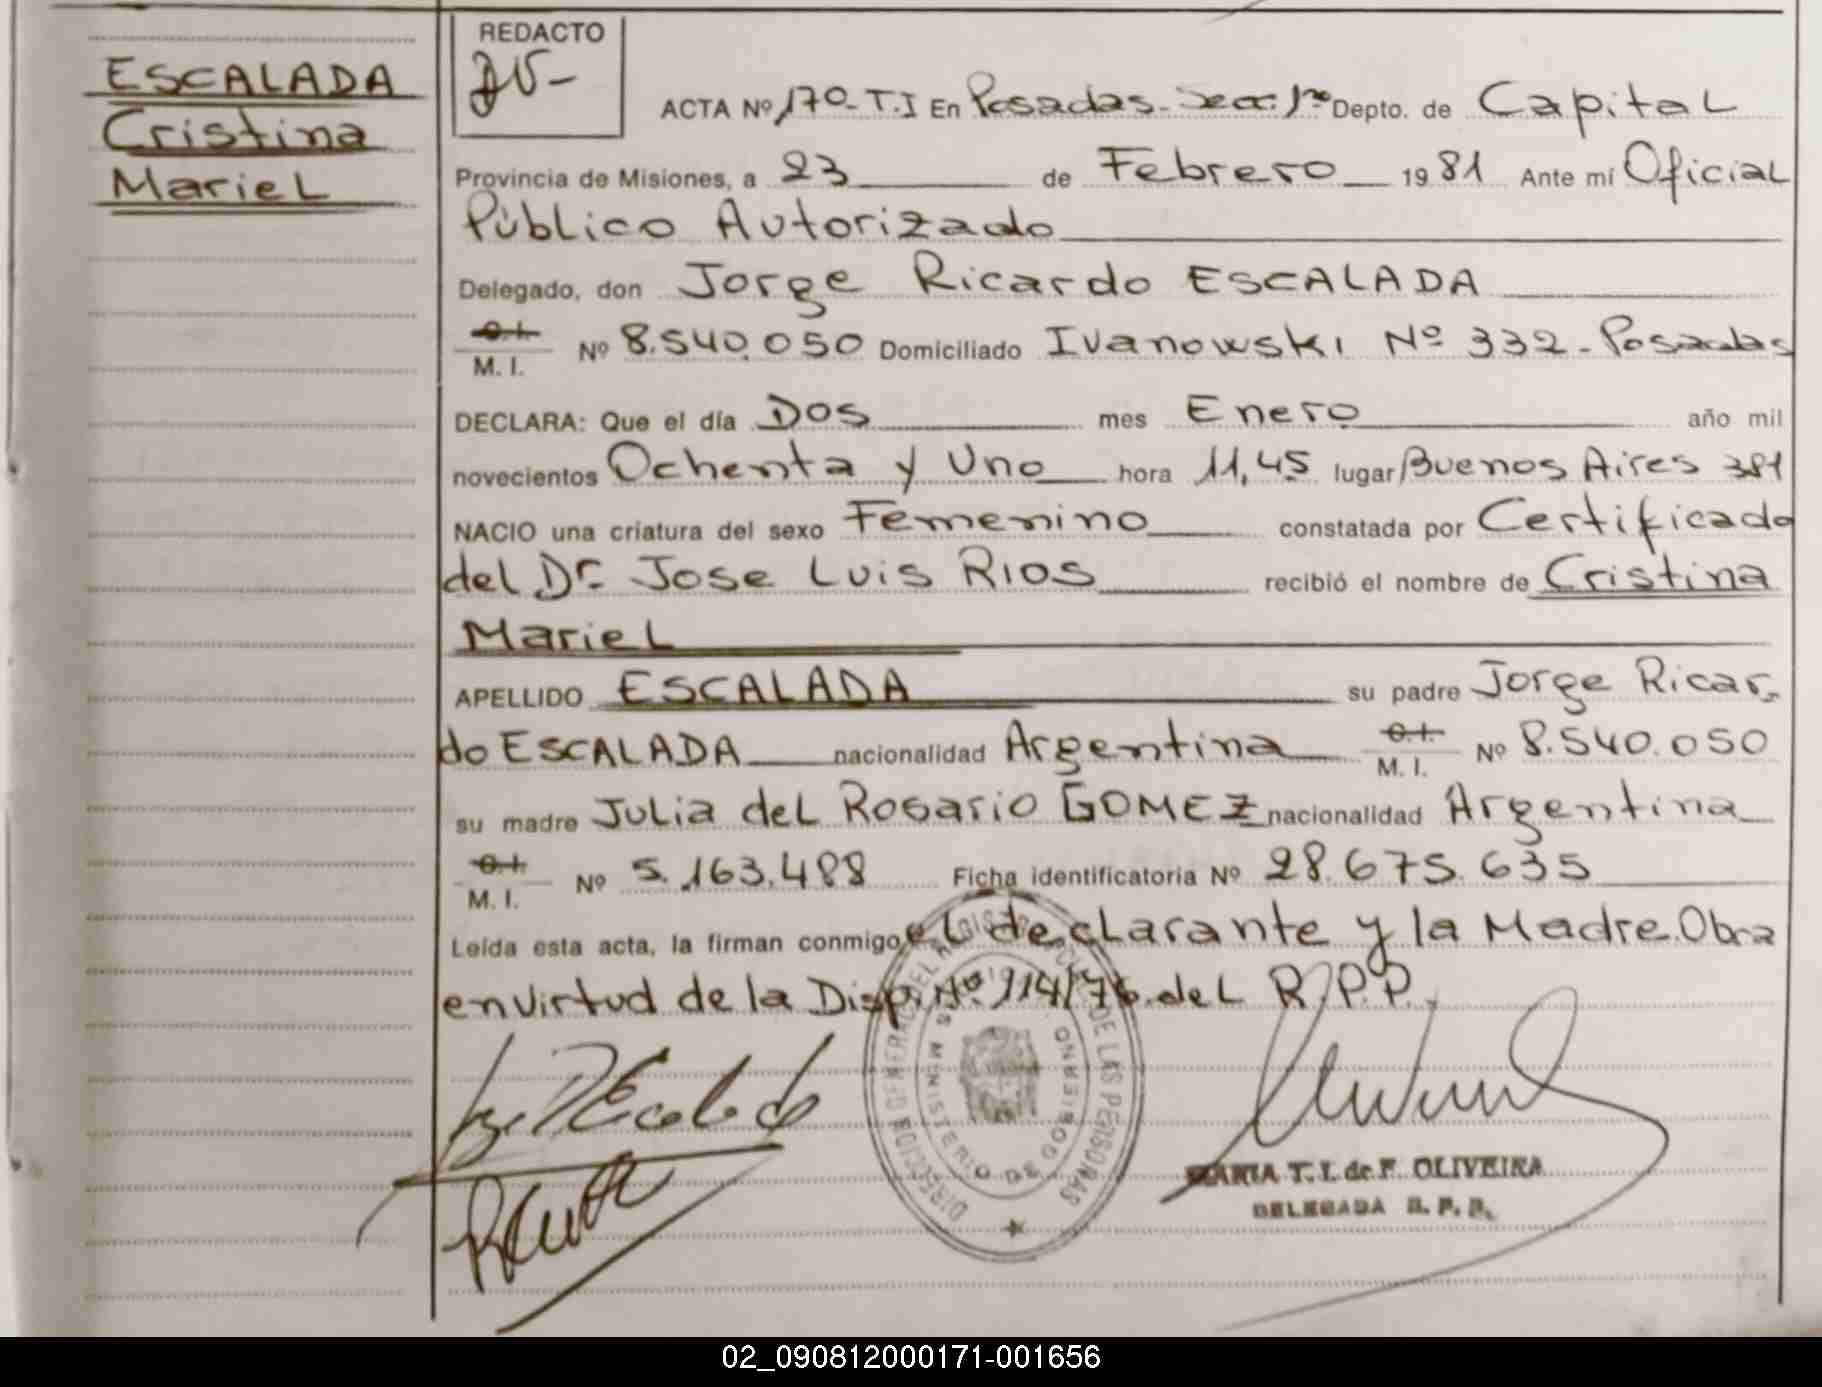 ESCALADA
Cristina
Mariel
REDACTO
ACTA Nº 170-T.I En Posadas-Secc. 1ra Depto. de Capital
Provincia de Misiones, a 23 de Febrero 1981 Ante mí Oficial
Público Autorizado
Delegado, don Jorge Ricardo ESCALADA
C.I.
M. I. Nº 8.540.050 Domiciliado Ivanowski Nº 332 - Posadas
DECLARA: Que el día Dos mes Enero año mil
novecientos Ochenta y Uno hora 11,45 lugar Buenos Aires 381
NACIO una criatura del sexo Femenino constatada por Certificado
del Dr. Jose Luis RIOS recibió el nombre de Cristina
Mariel
APELLIDO ESCALADA su padre Jorge Ricar-
do ESCALADA nacionalidad Argentina C.I. M. I. Nº 8.540.050
su madre Julia del Rosario GOMEZ nacionalidad Argentina
C.I.
M. I. Nº 5.163.488 Ficha identificatoria Nº 28.675.635
Leída esta acta, la firman conmigo el declarante y la Madre. Obra
en virtud de la Disp. Nº 114/76 del R.P.P.
DIRECCION GENERAL DEL REGISTRO PCIAL. DE LAS PERSONAS
MINISTERIO DE GOBIERNO
MARIA T. I. de F. OLIVEIRA
DELEGADA R. P. P.
02_090812000171-001656